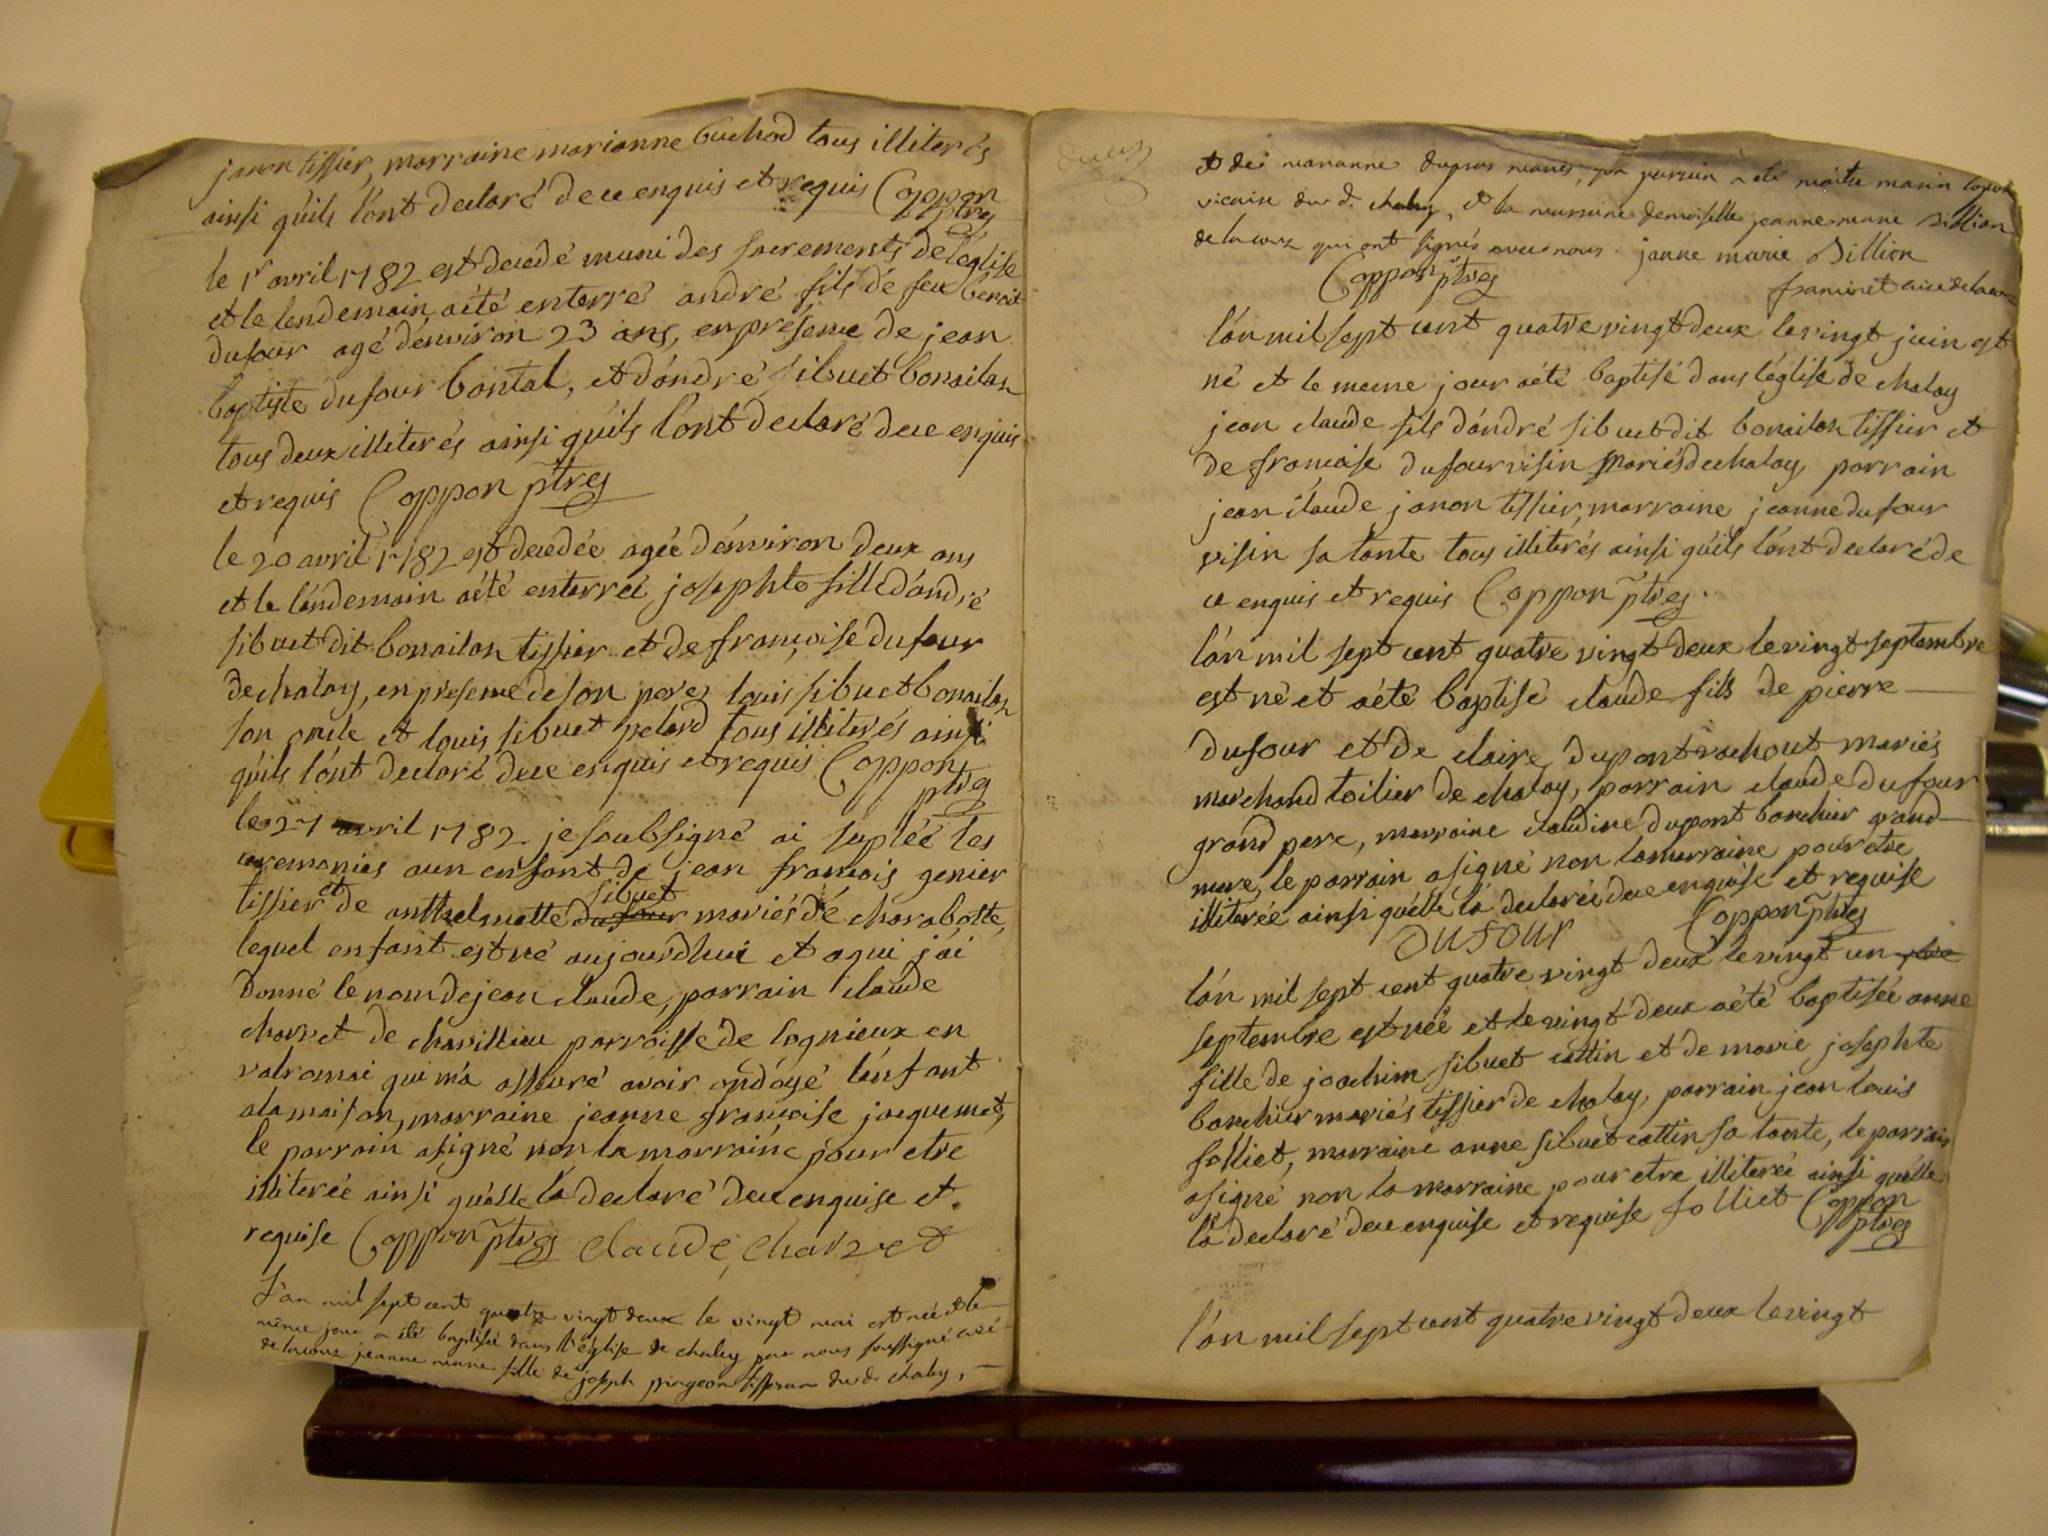 janon tissier, marraine marianne buchod tous illiterés
ainsi qu'ils l'ont declaré de ce enquis et requis Coppon
ptre
le 1r avril 1782 est decedé muni des sacrements de l'eglise
et le lendemain a été enterré andré fils de feu benoit
dufour agé d'environ 23 ans, en présence de jean
baptiste dufour bontal, et d'andré sibuet bonailan
tous deux illiterés ainsi qu'ils l'ont declaré de ce enquis
et requis Coppon ptre
le 20 avril 1782 est decedée agée d'environ deux ans
et le landemain a été enterrée josephte fille d'andré
sibuet dit bonailan tissier et de françoise dufour
de chaley, en presence de son pere, louis sibuet bonailan
son oncle et louis sibuet pelard tous illiterés ainsi
qu'ils l'ont declaré de ce enquis et requis Coppon
ptre
le 27 avril 1782 je soubsigné ai supléé les
ceremonies a un enfant de jean francois genier
tissier et de anthelmette dufour sibuet mariés de charabotte,
lequel enfant est né aujourdhui et a qui j'ai
donné le nom de jean claude, parrain claude
charvet de charillieu parroisse de lognieux en
valromai qui m'a assuré avoir ondoyé l'enfant
a la maison, marraine jeanne françoise jacquemet,
le parrain a signé non la marraine pour etre
illiterée ainsi qu'elle l'a declaré de ce enquise et
requise Coppon ptre claude charvet
L'an mil sept cent quatre vingt deux le vingt mai est née et le
même jour a été baptisée dans l'église de chaley par nous soussigné curé
de lacoux jeanne marie fille de joseph pingeon tisseran du d. chaley,
et de marianne dupras mariés, son parrain a été maitre marin Coppon
vicaire du d. chaley, et la marraine demoiselle jeanne marie Sillion
de lacoux qui ont signés avec nous. janne marie Sillion
Coppon ptre
franinet curé de lacoux
l'an mil sept cent quatre vingt deux le vingt juin est
né et le meme jour a été baptisé dans l'église de chaley
jean claude fils d'andré sibuet dit bonailan tissier et
de françoise dufour visin mariés de chaley, parrain
jean claude janon tissier, marraine jeanne dufour
visin sa tante tous illiterés ainsi qu'ils l'ont declaré de
ce enquis et requis Coppon ptre.
l'an mil sept cent quatre vingt deux le vingt septembre
est né et a été baptisé claude fils de pierre
dufour et de claire dupont rachout mariés
marchand toilier de chaley, parrain claude dufour
grand pere, marraine claudine dupont bonchier grand
mere, le parrain a signé non la marraine pour etre
illiterée ainsi qu'elle l'a declaré de ce enquise et requise
DUFOUR Coppon ptre
l'an mil sept cent quatre vingt deux le vingt un
septembre est née et le vingt deux a été baptisée anne
fille de joachim sibuet cattin et de marie josephte
bonchier mariés tissier de chaley, parrain jean louis
folliet, marraine anne sibuet cattin sa tante, le parrain
a signé non la marraine pour etre illiterée ainsi qu'elle
l'a declaré de ce enquise et requise folliet Coppon
ptre
l'an mil sept cent quatre vingt deux le vingt